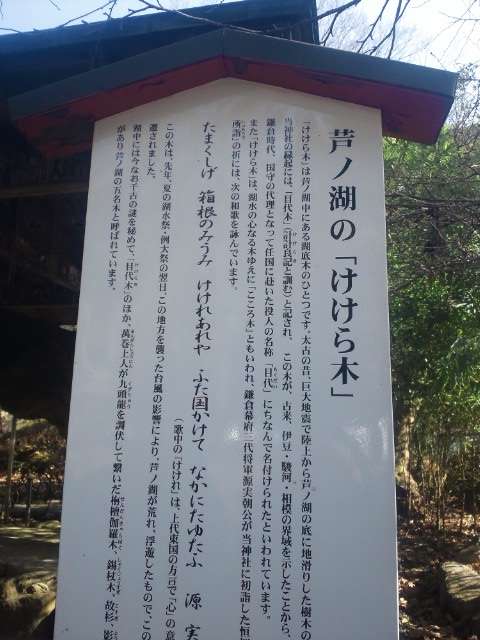 芦ノ湖の「けけら木」
「けけら木」は芦ノ湖中にある湖底木のひとつです。太古の昔、巨大地震で陸上から芦ノ湖の底に地滑りした樹木の
当神社の縁起には、「目代木」と記され、この木が、古来、伊豆・駿河・相模の界域を示したことから、
鎌倉時代、国守の代理となって任国に赴いた役人の名称「目代」にちなんで名付けられたといわれています。
また「けけら木」は、湖水の心なる木ゆえに「こころ木」ともいわれ、鎌倉幕府三代将軍源実朝公が当神社に初詣した恒
所詣」の折には、次の和歌を詠んでいます。
たまくしげ 箱根のみうみ けけれあれや ふた国かけて なかにたゆたふ 源 実
（歌中の「けけれ」は、上代東国の方言で「心」の意
この木は、先年、夏の湖水祭・例大祭の翌日、この地方を襲った台風の影響により、芦ノ湖が荒れ、浮遊したもので、この
遷されました。
湖中には今なお千古の謎を秘めて、「目代木」のほか、萬巻上人が九頭龍を調伏して繋いだ栴檀伽羅木、錫杖木、故杉、影
があり芦ノ湖の五名木と呼ばれています。